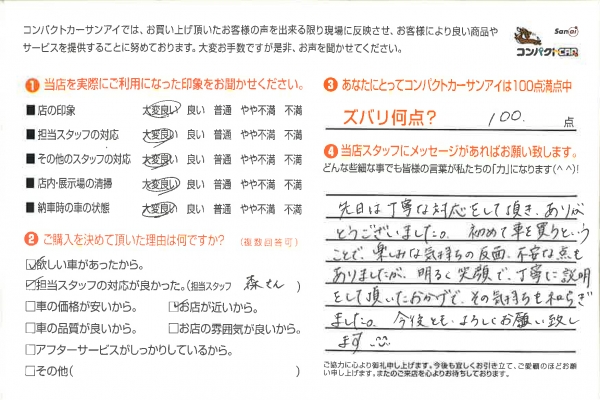 コンパクトカーサンアイでは、お買い上げ頂いたお客様の声を出来る限り現場に反映させ、お客様により良い商品や
サービスを提供することに努めております。大変お手数ですが是非、お声を聞かせてください。
Sanai
コンパクトCAR
1 当店を実際にご利用になった印象をお聞かせください。
■店の印象 大変良い 良い 普通 やや不満 不満
■担当スタッフの対応 大変良い 良い 普通 やや不満 不満
■その他のスタッフの対応 大変良い 良い 普通 やや不満 不満
■店内・展示場の清掃 大変良い 良い 普通 やや不満 不満
■納車時の車の状態 大変良い 良い 普通 やや不満 不満
2 ご購入を決めて頂いた理由は何ですか? (複数回答可)
☑欲しい車があったから。
☑担当スタッフの対応が良かった。(担当スタッフ 森さん )
□車の価格が安いから。 ☑お店が近いから。
□車の品質が良いから。 □お店の雰囲気が良いから。
□アフターサービスがしっかりしているから。
□その他( )
3 あなたにとってコンパクトカーサンアイは100点満点中
ズバリ何点? 100. 点
4 当店スタッフにメッセージがあればお願い致します。
どんな些細な事でも皆様の言葉が私たちの「力」になります(^^)!
先日は丁寧な対応をして頂き、ありが
とうございました。初めて車を買うという
ことで、楽しみな気持ちの反面、不安な点も
ありましたが、明るく笑顔で、丁寧に説明
をして頂いたおかげで、その気持ちも和らぎ
ました。今後とも、よろしくお願い致し
ます
ご協力に心より御礼申し上げます。今後も宜しくお引き立て、ご愛顧のほどお願
い申し上げます。またのご来店を心よりお待ちしております。